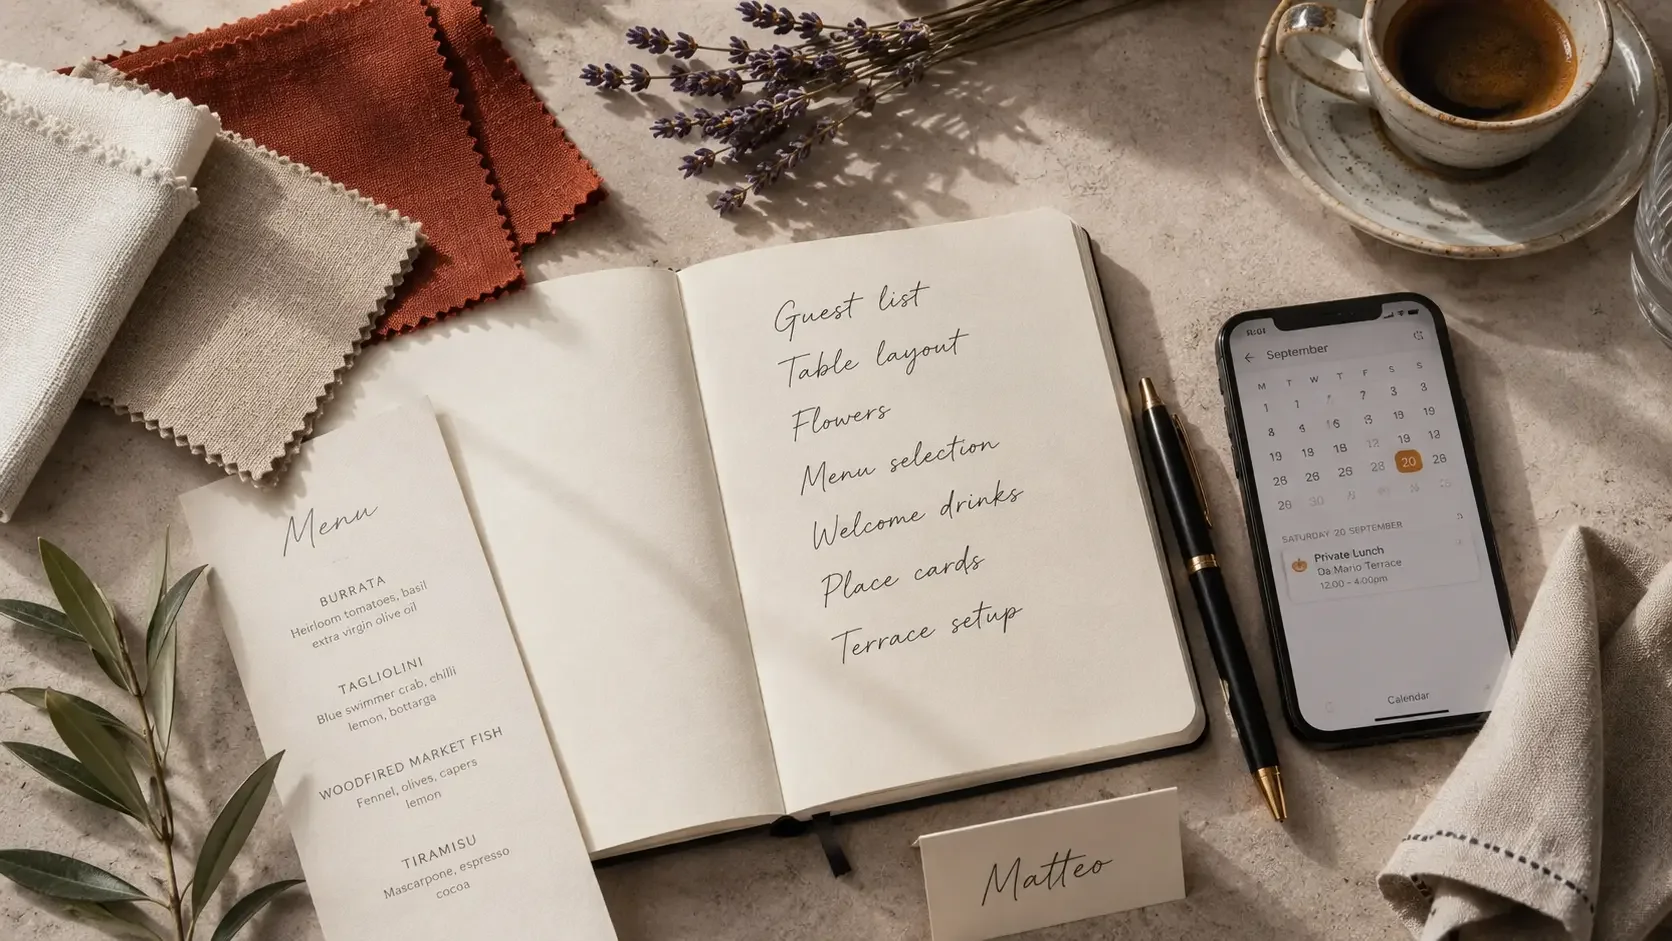 Menu
BURRATA
Heirloom tomatoes, basil
extra virgin olive oil
TAGLIOLINI
Blue swimmer crab, chilli
lemon, bottarga
WOODFIRED MARKET FISH
Fennel, olives, capers
lemon
TIRAMISU
Mascarpone, espresso
cocoa
Guest list
Table layout
Flowers
Menu selection
Welcome drinks
Place cards
Terrace setup
Matteo
September
M T W T F S S
20
SATURDAY 20 SEPTEMBER
Private Lunch
Da Mario Terrace
12.00 - 4:00pm
Calendar